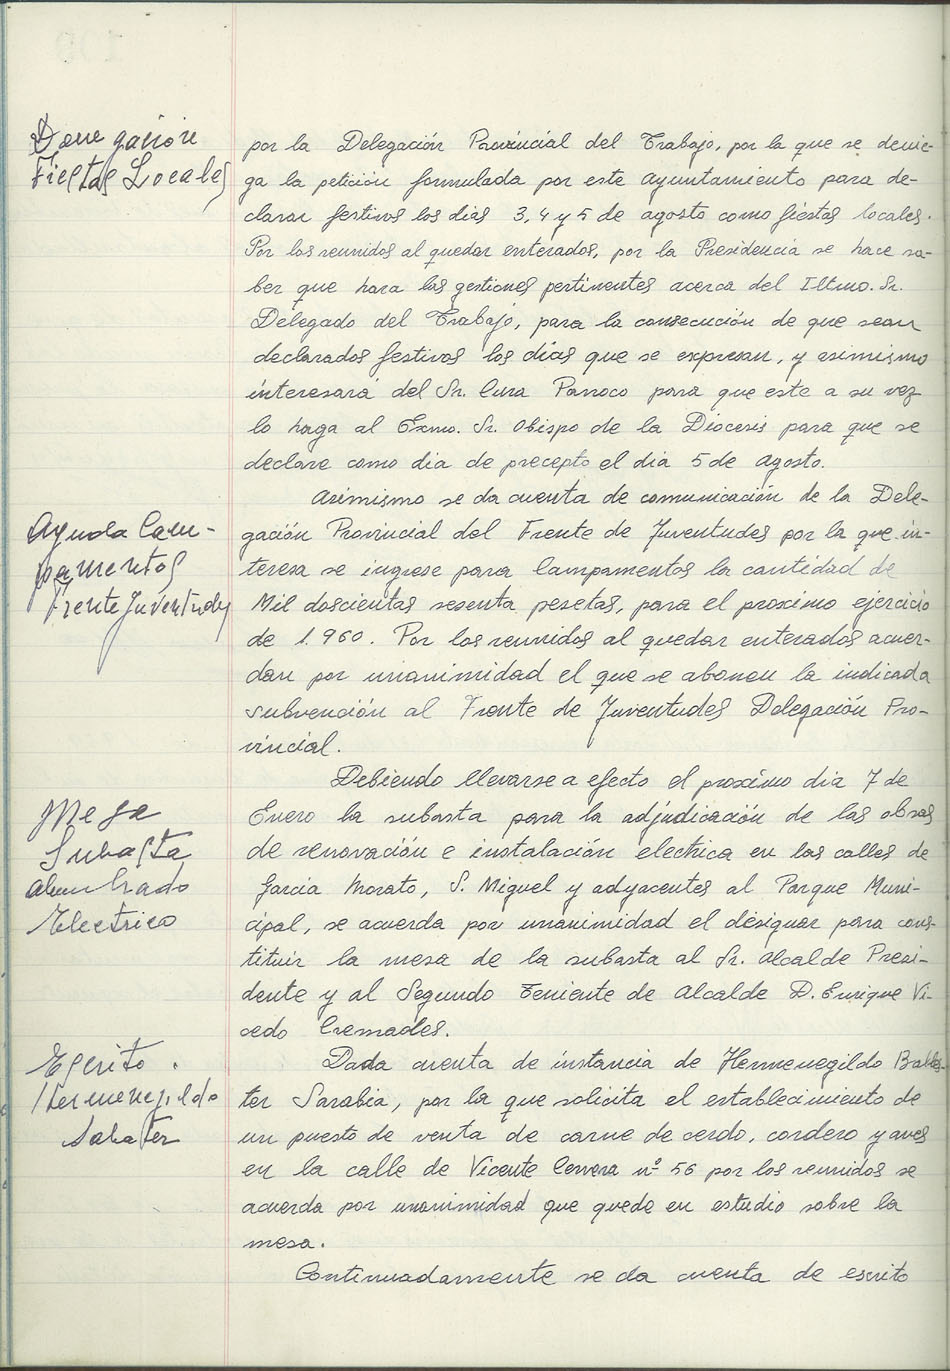 Denegación
Fiestas Locales
por la Delegación Provincial del Trabajo, por la que se denie-
ga la petición formulada por este Ayuntamiento para de-
clarar festivos los dias 3, 4 y 5 de agosto como fiestas locales.
Por los reunidos al quedar enterados, por la Presidencia se hace sa-
ber que hara las gestiones pertinentes acerca del Iltmo. Sr.
Delegado del Trabajo, para la consecución de que sean
declarados festivos los días que se expresan, y asimismo
interesará del Sr. Cura Parroco para que este a su vez
lo haga al Exmo. Sr. Obispo de la Diocesis para que se
declare como dia de precepto el dia 5 de Agosto.
Ayuda Cam-
pamentos
Frente Juventudes
Asimismo se da cuenta de comunicación de la Dele-
gación Provincial del Frente de Juventudes por la que in-
teresa se ingrese para Campamentos la cantidad de
Mil doscientas sesenta pesetas, para el proximo ejercicio
de 1.960. Por los reunidos al quedar enterados acuer-
dan por unanimidad el que se abonen la indicada
subvención al Frente de Juventudes Delegación Pro-
vincial.
Mesa
Subasta
Alumbrado
Electrico
Debiendo llevarse a efecto el proximo dia 7 de
Enero la subasta para la adjudicación de las obras
de renovación e instalación electrica en las calles de
Garcia Morato, S. Miguel y adyacentes al Parque Muni-
cipal, se acuerda por unanimidad el designar para cons-
tituir la mesa de la subasta al Sr. Alcalde Presi-
dente y al Segundo Teniente de Alcalde D. Enrique Vi-
cedo Cremades.
Escrito
Hermenegildo
Sabater
Dada cuenta de instancia de Hermenegildo
ter Sarabia, por la que solicita el establecimiento de
un puesto de venta de carne de cerdo, cordero y aves
en la calle de Vicente Cervera nº 56 por los reunidos se
acuerda por unanimidad que quede en estudio sobre la
mesa.
Continuadamente se da cuenta de escrito